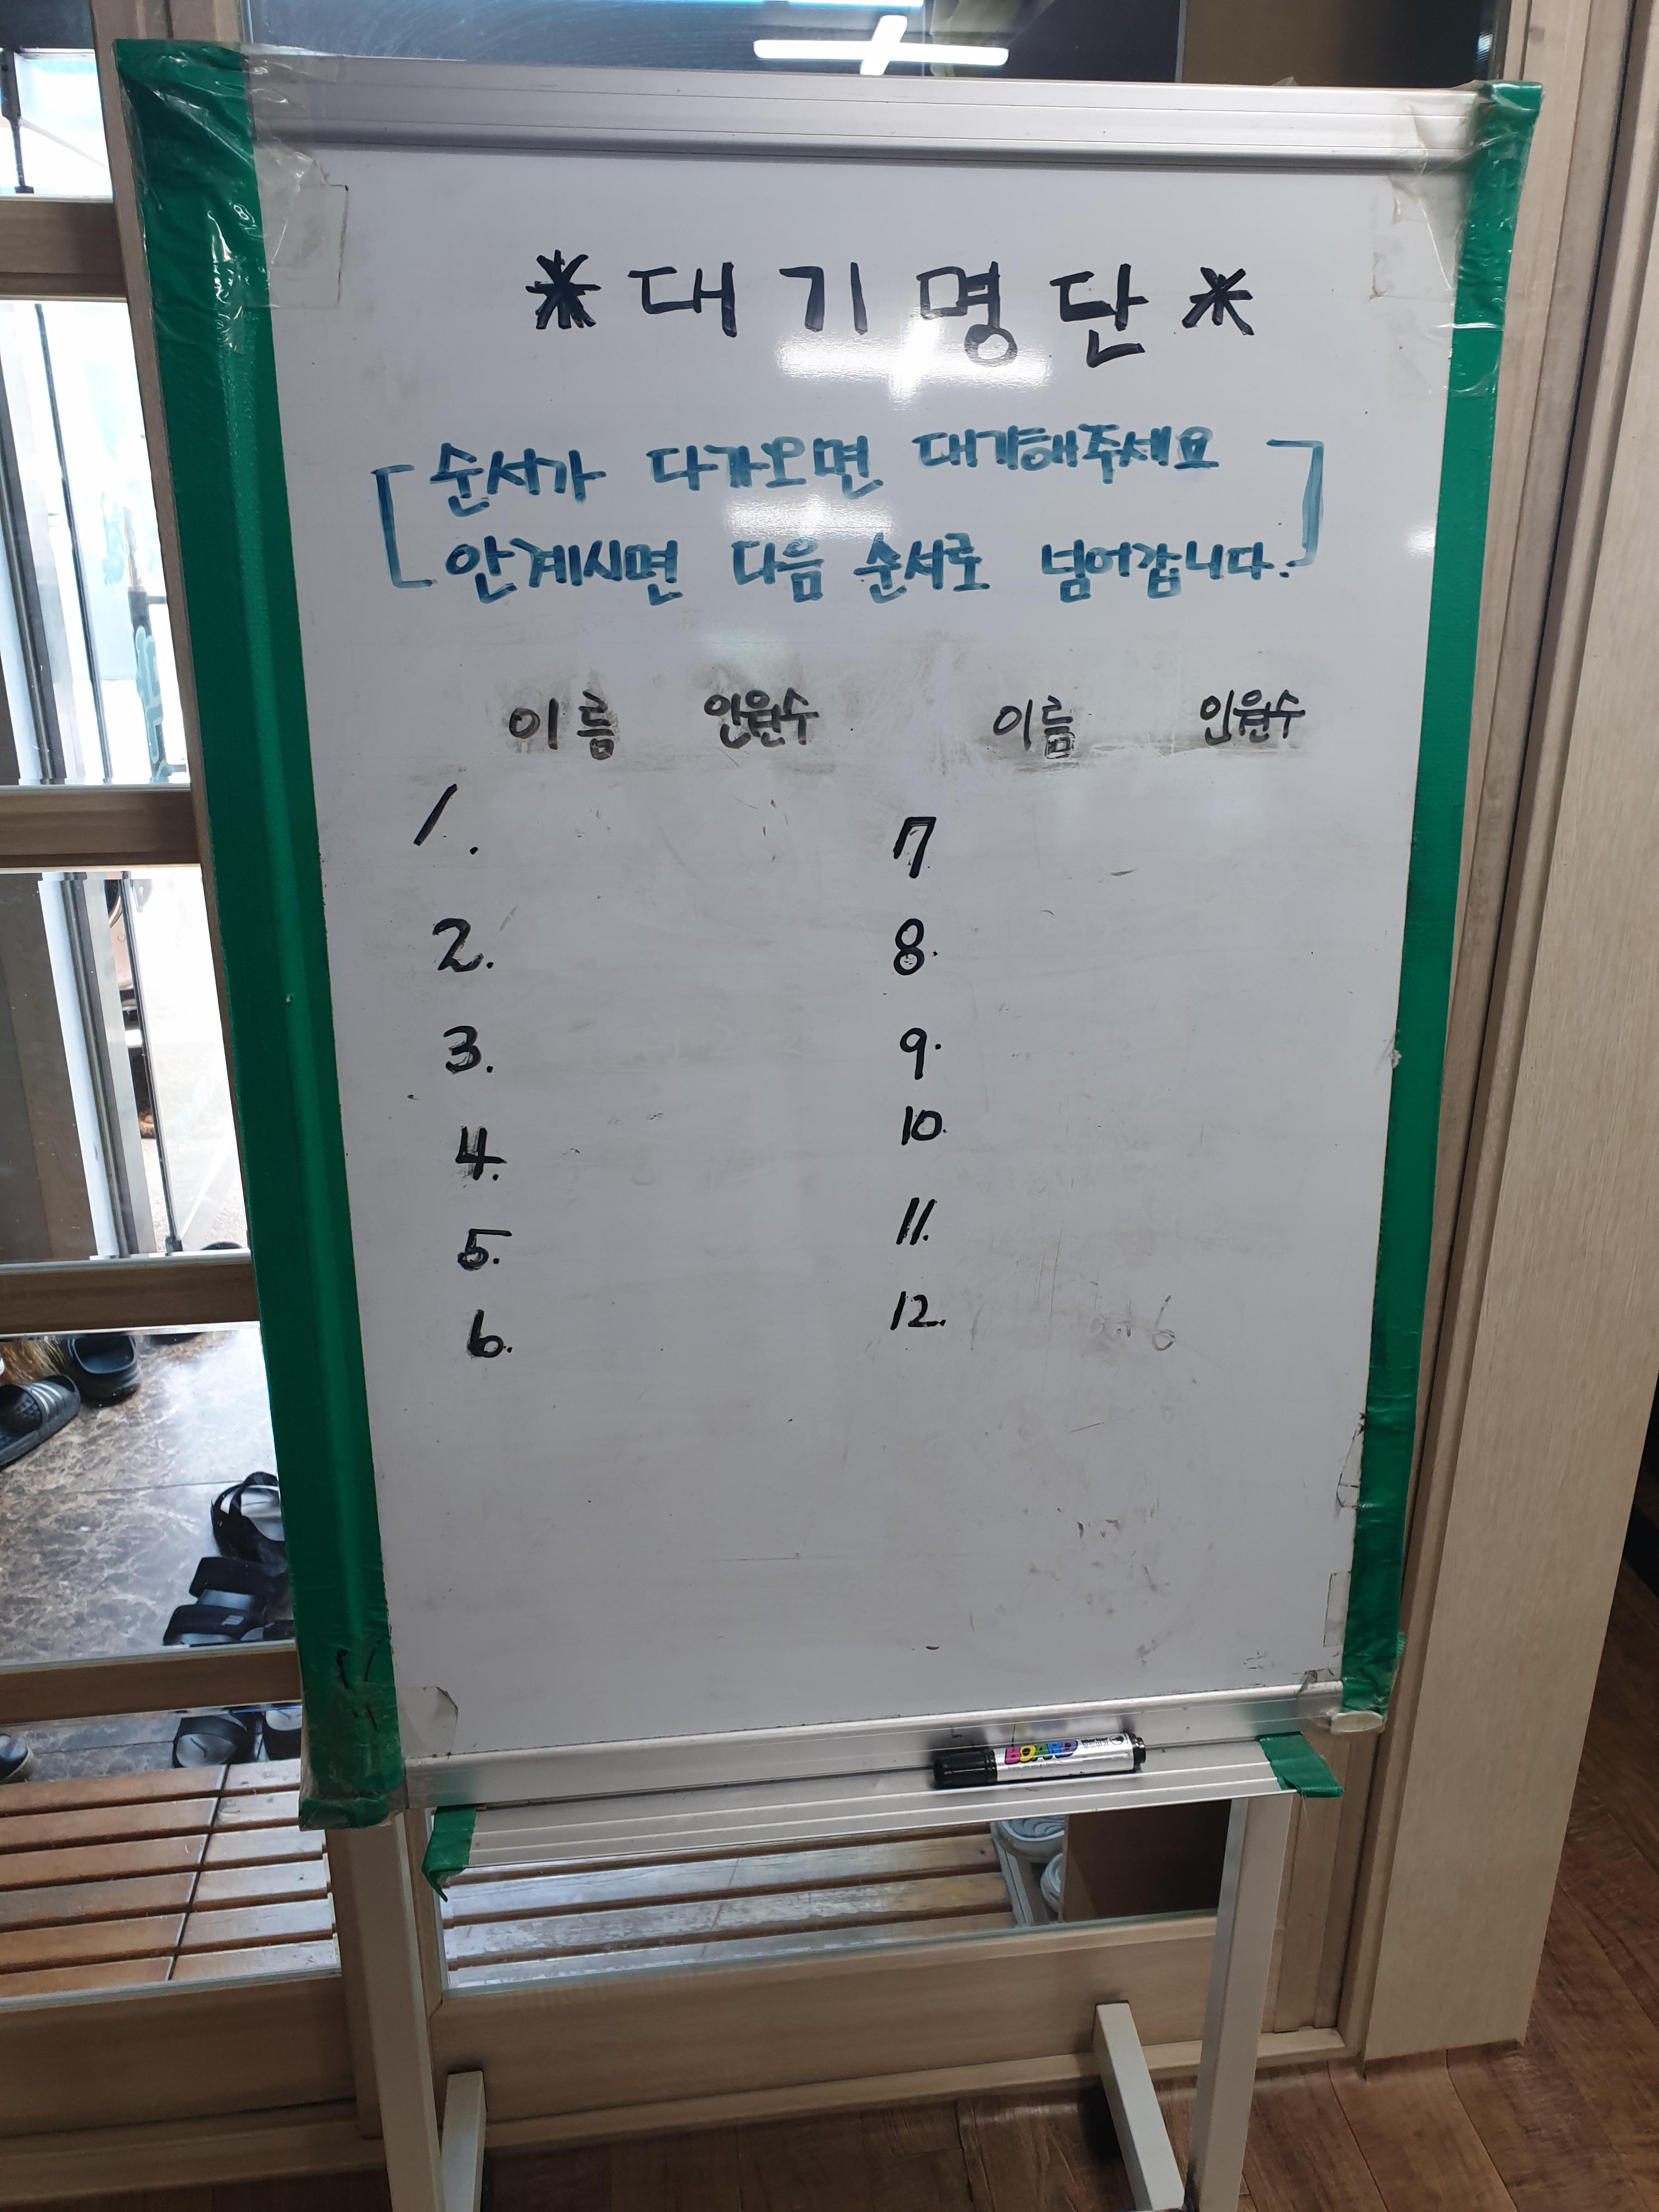 * 대기명단 *
[순서가 다가오면 대기해주세요
안계시면 다음 순서로 넘어갑니다.]
이름 인원수 이름 인원수
1. 7
2. 8.
3. 9.
4. 10.
5. 11.
6. 12.
BOARD